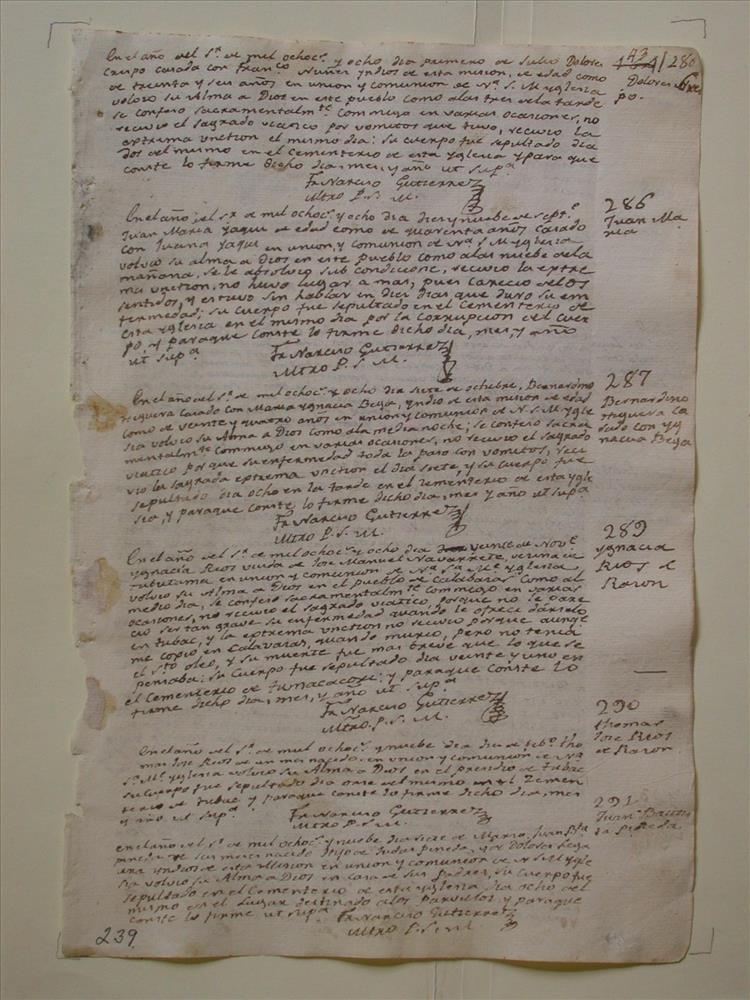 En el año del Sr. de mil ochoc.s y ocho dia primero de Julio Dolores
Crespo Casada con Fran.co Nuñes Yndios de esta mision, de edad como
de treinta y seis años en union y comunion de N.a S. M Yglesia
volvio su Alma a Dios en este pueblo como alas tres dela tarde
se confeso Sacramentalm.te Commigo en varias ocasiones, no
recivio el sagrado viatico por vomitos que tuvo, recivio la
extrema vncion el mismo dia: su cuerpo fue sepultado dia
dos del mismo en el Cementerio de esta Yglecia y para que
conste lo firme dicho dia, mes, y año ut sup.a
Fr Narciso Gutierrez
Mtro P. S. M.
43
280
Dolores Cres
po.
En el año del Sr. de mil ochoc.s y ocho dia diez y nuebe de Sept.e
Juan Maria Yaqui de edad como de quarenta años casado
con Juana Yaqui en union, y comunion de N.a S. M Yglesia
volvio su alma a Dios en este pueblo como alas nuebe dela
mañana, se le absolvio sub condicione, recivio la extre
ma vncion, no huvo lugar a mas, pues carecio delos
sentidos, y estuvo sin hablar en diez dias que duro su em
fermedad; su cuerpo fue sepultado en el Cementerio de
esta Yglesia en el mismo dia por la corrupcion del Cuer
po, y paraque Conste lo firme dicho dia, mes, y año
ut sup.a
Fr Narciso Gutierrez
Mtro P. S. M.
286
Juan Ma
ria
En el año del Sr. de mil ochoc.s y ocho dia siete de octubre, Bernardino
Higuera Casado con Maria Ygnacia Beja, Yndio de esta mision de edad
como de veinte y quatro años en union y comunion de N. S. M Ygle
sia volvio su Alma a Dios como ala media noche; se confeso sacra
mentalm.te commigo en varias ocaciones, no recivio el sagrado
viatico por que su enfermedad toda la paso con vomitos, reci
vio la sagrada extrema vncion el dia siete, y su cuerpo fue
sepultado dia ocho en la tarde en el Cementerio de esta Ygle
sia, y paraque conste lo firme dicho dia, mes y año ut sup.a
Fr Narciso Gutierrez
Mtro P. S. M.
287
Bernardino
Higuera Ca
sado con Yg
nacia Beja
En el año del Sr. de mil ochoc.s y ocho dia veinte de Nov.e
Ygnacia Rios viuda de Jose Manuel Navarrete, vecina de
en union y comunion de N.a S.a M.e Yglesia,
volvio su Alma a Dios en el pueblo de Calabazas como al
medio dia, se confeso Sacramentalm.te commigo en varias
ocasiones, no recivio el sagrado viatico, porque no le pare
cio ser tan grave su enfermedad quando le ofreci darselo
en tubac, y la extrema vncion no recivio porque aunqe
me cogio en Calavazas, quando murio, pero no tenia
el S.to oleo, y su muerte fue mas breve que lo que se
pensaba: su cuerpo fue sepultado dia veinte y uno en
el Cementerio de Tumacacori: y paraque Conste lo
firme dicho dia, mes, y año ut sup.a
Fr Narciso Gutierrez
Mtro. P. S. M.
289
Ygnacia
Rios de
Razon
En el año del Sr. de mil ochoc.s y nuebe dia diez de feb.o tho
mas Jose Rios de un mes nacido, en union y comunion de N.a
S.a M.e Yglesia volvio su Alma a Dios en el presidio de tubac
su cuerpo fue sepultado dia onse del mismo en el Cemen
terio de tubac y paraque conste lo firme dicho dia, mes
y año ut sup.a
Fr Narciso Gutierrez
Mtro P. S. M.
290
thomas
Jose Rios
de Razon
en el año del Sr. de mil ochoc.s y nuebe dia siete de Marzo, Juan B.ta
Pineda de seis meses nacido hijo de Judas Pineda, y de Dolores
Yndios de esta Mision en union y comunion de N S M Ygle
sia volvio su Alma a Dios en casa de sus Padres, su cuerpo fue
sepultado en el Cementerio de esta Yglesia dia ocho del
mismo en el lugar destinado alos parvulos y paraque
conste lo firme ut sup.a
Fr Narciso Gutierrez
Mtro P. S. M
291
Juan Bautis
ta Pineda
239